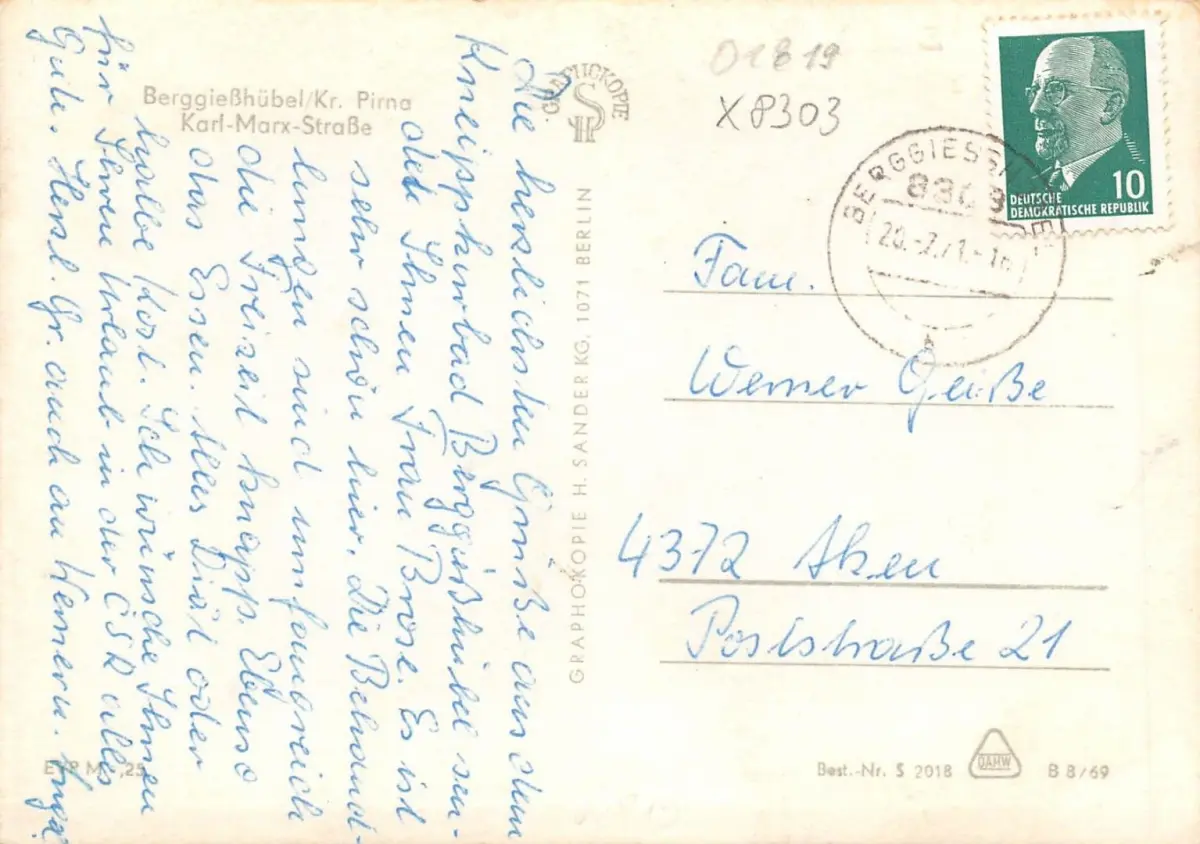 Berggießhübel/Kr. Pirna
Karl-Marx-Straße
Die herzlichsten Grüße aus dem
Kneippkurbad Berggießhübel sen-
det Ihnen Frau Brose. Es ist
sehr schön hier. Die Behand-
lungen sind umfangreich
die Freizeit knapp. Ebenso
das Essen. Alles Diät oder
halbe Kost. Ich wünsche Ihnen
für Ihren Urlaub in der ČSR alles
Gute. Herzl. Gr. auch an Wernern.
EVP M -,25
GRAPHOKOPIE
GRAPHOKOPIE H. SANDER KG, 1071 BERLIN
01819
X 8303
BERGGIESSHÜBEL
8303
20.-7.71.-16
10
DEUTSCHE
DEMOKRATISCHE REPUBLIK
Fam.
Werner Geiße
4372 Aken
Poststraße 21
Best.-Nr. S 2018
QAHW
B 8/69